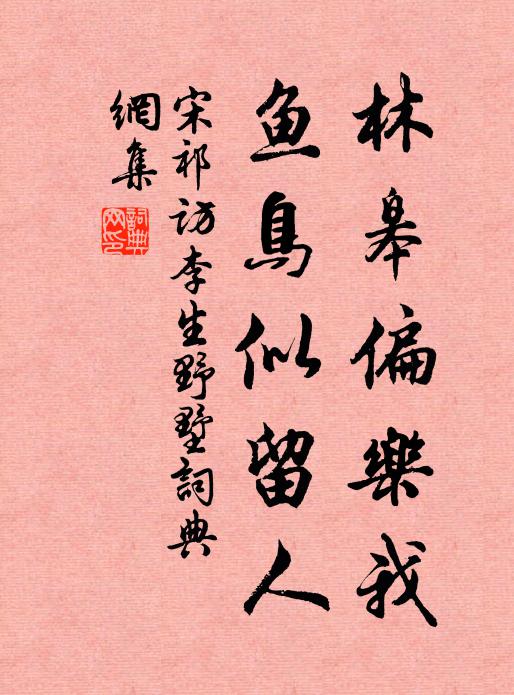 林皋偏樂我
魚鳥似留人
宋祁訪李生野墅詞典
網集
詞典網印